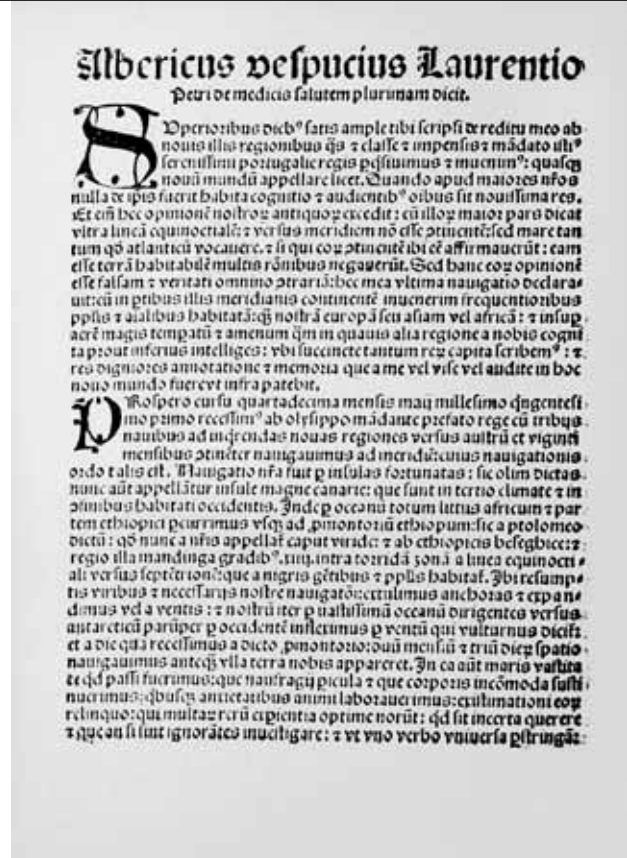 Albericus vespucius Laurentio
Petri de medicis salutem plurimam dicit.
SUperioribus dieb⁹ satis ample tibi scripsi de reditu meo ab
nouis illis regionibus q̃s ⁊ classe ⁊ impensis ⁊ mãdato illi⁹
serenissimi portugalie regis pq̃siuimus ⁊ inuenim⁹: quasq̃
nouũ mundũ appellare licet. Quando apud maiores nr̃os
nulla de ip̃is fuerit habita cognitio ⁊ audientib⁹ oĩbus sit nouissima res.
Et eĩñ hec opinionẽ nostroꝝ antiquoꝝ excedit: cũ illoꝝ maior pars dicat
vltra lineã equinoctialẽ: ⁊ versus meridiem nõ esse ꝯtinentẽ: sed mare tan
tum qd̃ atlanticũ vocauere. ⁊ si qui eoꝝ ꝯtinentẽ ibi eẽ affirmauerũt: eam
esse terrã habitabilẽ multis rõnibus negauerũt. Sed hanc eoꝝ opinionẽ
esse falsam ⁊ veritati omnino ꝯtrariã: hec mea vltima nauigatio declara
uit: cũ in ꝑtibus illis meridianis continentẽ inuenerim frequentioribus
pp̃lis ⁊ aĩalibus habitatã: q̃ nostrã europã seu asiam vel africã: ⁊ insuꝑ
aerẽ magis temꝑatũ ⁊ amenum q̃m in quauis alia regione a nobis cogni
ta prout inferius intelliges: vbi succincte tantum reꝝ capita scribem⁹: ⁊
res digniores annotatione ⁊ memoria que a me vel vise vel audite in hoc
nouo mundo fuere vt infra patebit.
PRospero cursu quartadecima mensis maij millesimo q̃ngentesi
mo primo recessim⁹ ab olysippo mãdante prefato rege cũ tribus
nauibus ad inq̃rendas nouas regiones versus austrũ et viginti
mensibus ꝯtinẽter nauigauimus ad meridiẽ: cuius nauigationis
ordo talis est. Nauigatio nr̃a fuit ꝑ insulas fortunatas: sic olim dictas
nunc aũt appellãtur insule magne canarie: que sunt in tertio climate ⁊ in
ꝯfinibus habitati occidentis. Inde ꝑ oceanũ totum littus africum ⁊ par
tem ethiopici ꝑcurrimus vsq̃ ad ꝓmontoriũ ethiopum: sic a ptolomeo
dictũ: qd̃ nunc a nr̃is appellat̃ caput viride: ⁊ ab ethiopicis beseghice: ⁊
regio illa mandinga gradib⁹ .xiiij. intra torridã zonã a linea equinocti
ali versus septẽtrionẽ: que a nigris gẽtibus ⁊ pp̃lis habitat̃. Ibi resump
tis viribus ⁊ necessarijs nostre nauigatõi: extulimus anchoras ⁊ expan
dimus vela ventis: ⁊ nostrũ iter ꝑ vastissimũ oceanũ dirigentes versus
antarcticũ parũper ꝑ occidentẽ infleximus ꝑ ventũ qui vulturnus dicit̃:
et a die qua recessimus a dicto ꝓmontorio: duũ mensiũ ⁊ triũ dieꝝ spatio
nauigauimus anteq̃ vlla terra nobis appareret. In ea aũt maris vastita
te qd̃ passi fuerimus: que naufragij ꝑicula ⁊ que corporis incõmoda susti
nuerimus: q̃busq̃ anxietatibus animi laborauerimus: existimationi eoꝝ
relinquo: qui multaꝝ rerũ exꝑientia optime norũt: qd̃ sit incerta querere
⁊ que an si sint ignorãtes inuestigare: ⁊ vt vno verbo vniuersa ꝑstringã: